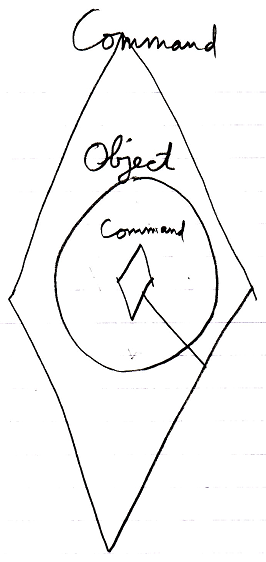 Command
Object
Command